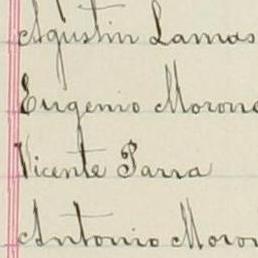 Agustin Lamas
Eugenio Morone
Vicente Parra
Antonio Moron